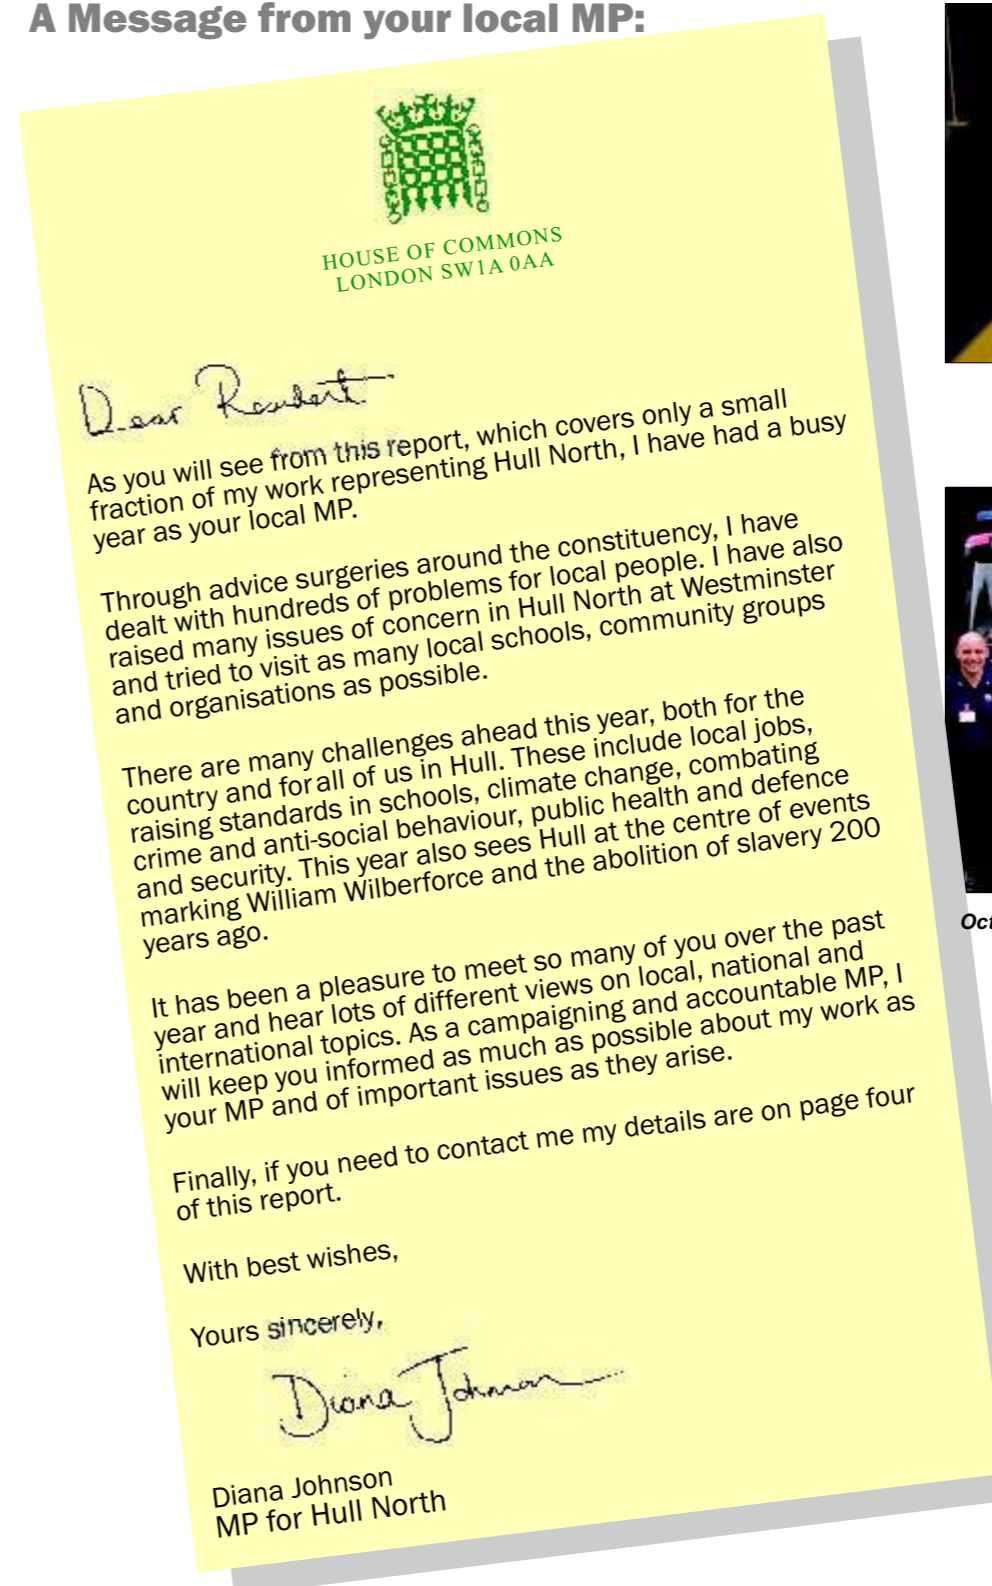 A Message from your local MP:
HOUSE OF COMMONS
LONDON SW1A 0AA
Dear Resident
As you will see from this report, which covers only a small
fraction of my work representing Hull North, I have had a busy
year as your local MP.
Through advice surgeries around the constituency, I have
dealt with hundreds of problems for local people. I have also
raised many issues of concern in Hull North at Westminster
and tried to visit as many local schools, community groups
and organisations as possible.
There are many challenges ahead this year, both for the
country and for all of us in Hull. These include local jobs,
raising standards in schools, climate change, combating
crime and anti-social behaviour, public health and defence
and security. This year also sees Hull at the centre of events
marking William Wilberforce and the abolition of slavery 200
years ago.
It has been a pleasure to meet so many of you over the past
year and hear lots of different views on local, national and
international topics. As a campaigning and accountable MP, I
will keep you informed as much as possible about my work as
your MP and of important issues as they arise.
Finally, if you need to contact me my details are on page four
of this report.
With best wishes,
Yours sincerely,
Diana Johnson
Diana Johnson
MP for Hull North
Oct